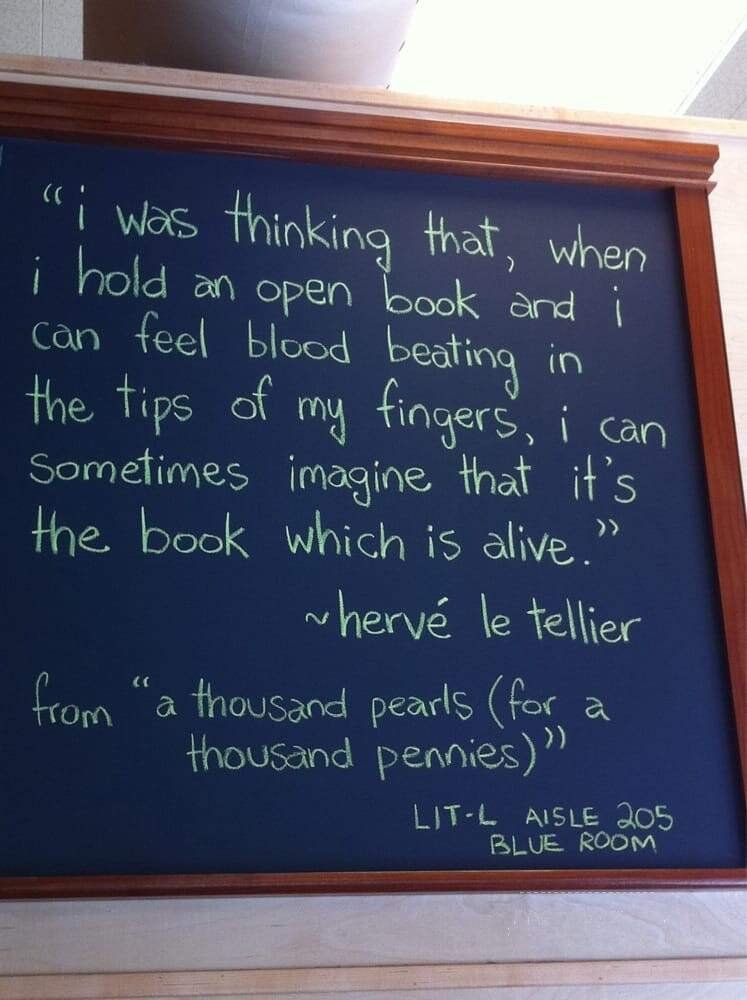 “i was thinking that, when
i hold an open book and i
can feel blood beating in
the tips of my fingers, i can
sometimes imagine that it's
the book which is alive.”
~hervé le tellier
from “a thousand pearls (for a
thousand pennies)”
LIT-L AISLE 205
BLUE ROOM